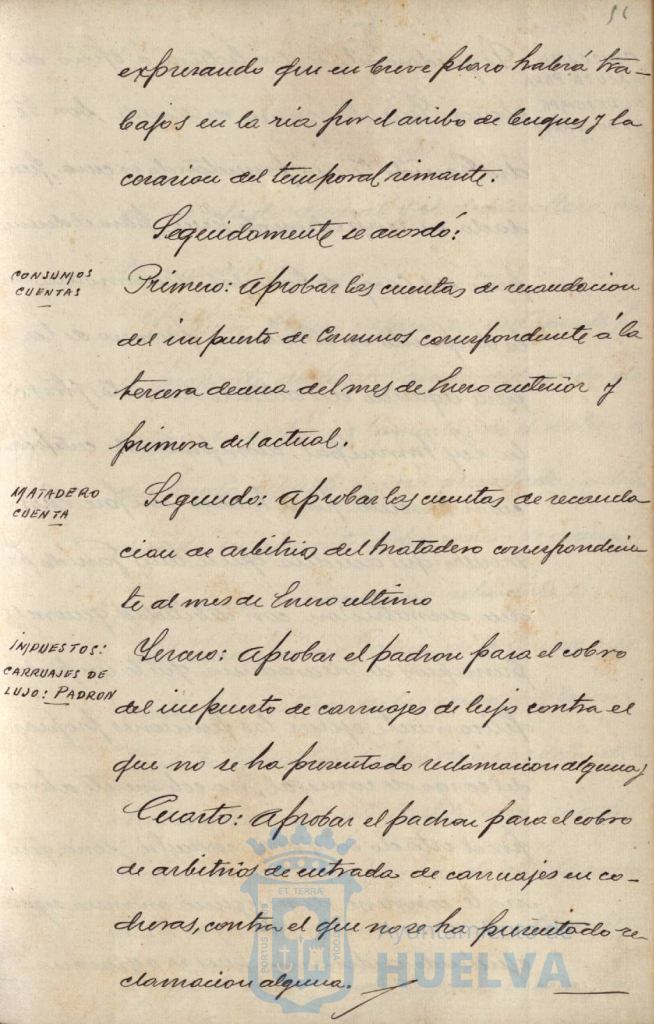 51
expresando que en breve plazo habrá tra-
bajos en la ria por el arribo de buques y la
cesación del temporal reinante.
Seguidamente se acordó:
CONSUMOS
CUENTAS
Primero: Aprobar las cuentas de recaudacion
del impuesto de Consumos correspondiente á la
tercera decena del mes de Enero anterior y
primera del actual.
MATADERO
CUENTA
Segundo: Aprobar las cuentas de recauda
cion de arbitrios del Matadero correspondien
te al mes de Enero ultimo
IMPUESTOS:
CARRUAJES DE
LUJO: PADRON
Tercero: Aprobar el padron para el cobro
del impuesto de carruajes de lujo contra el
que no se ha presentado reclamacion alguna;
Cuarto: Aprobar el padron para el cobro
de arbitrios de entrada de carruajes en co-
cheras, contra el que no se ha presentado re-
clamacion alguna.
ET TERRÆ
PORTUS MARIS
CUSTODIA
Ayuntamiento de
HUELVA